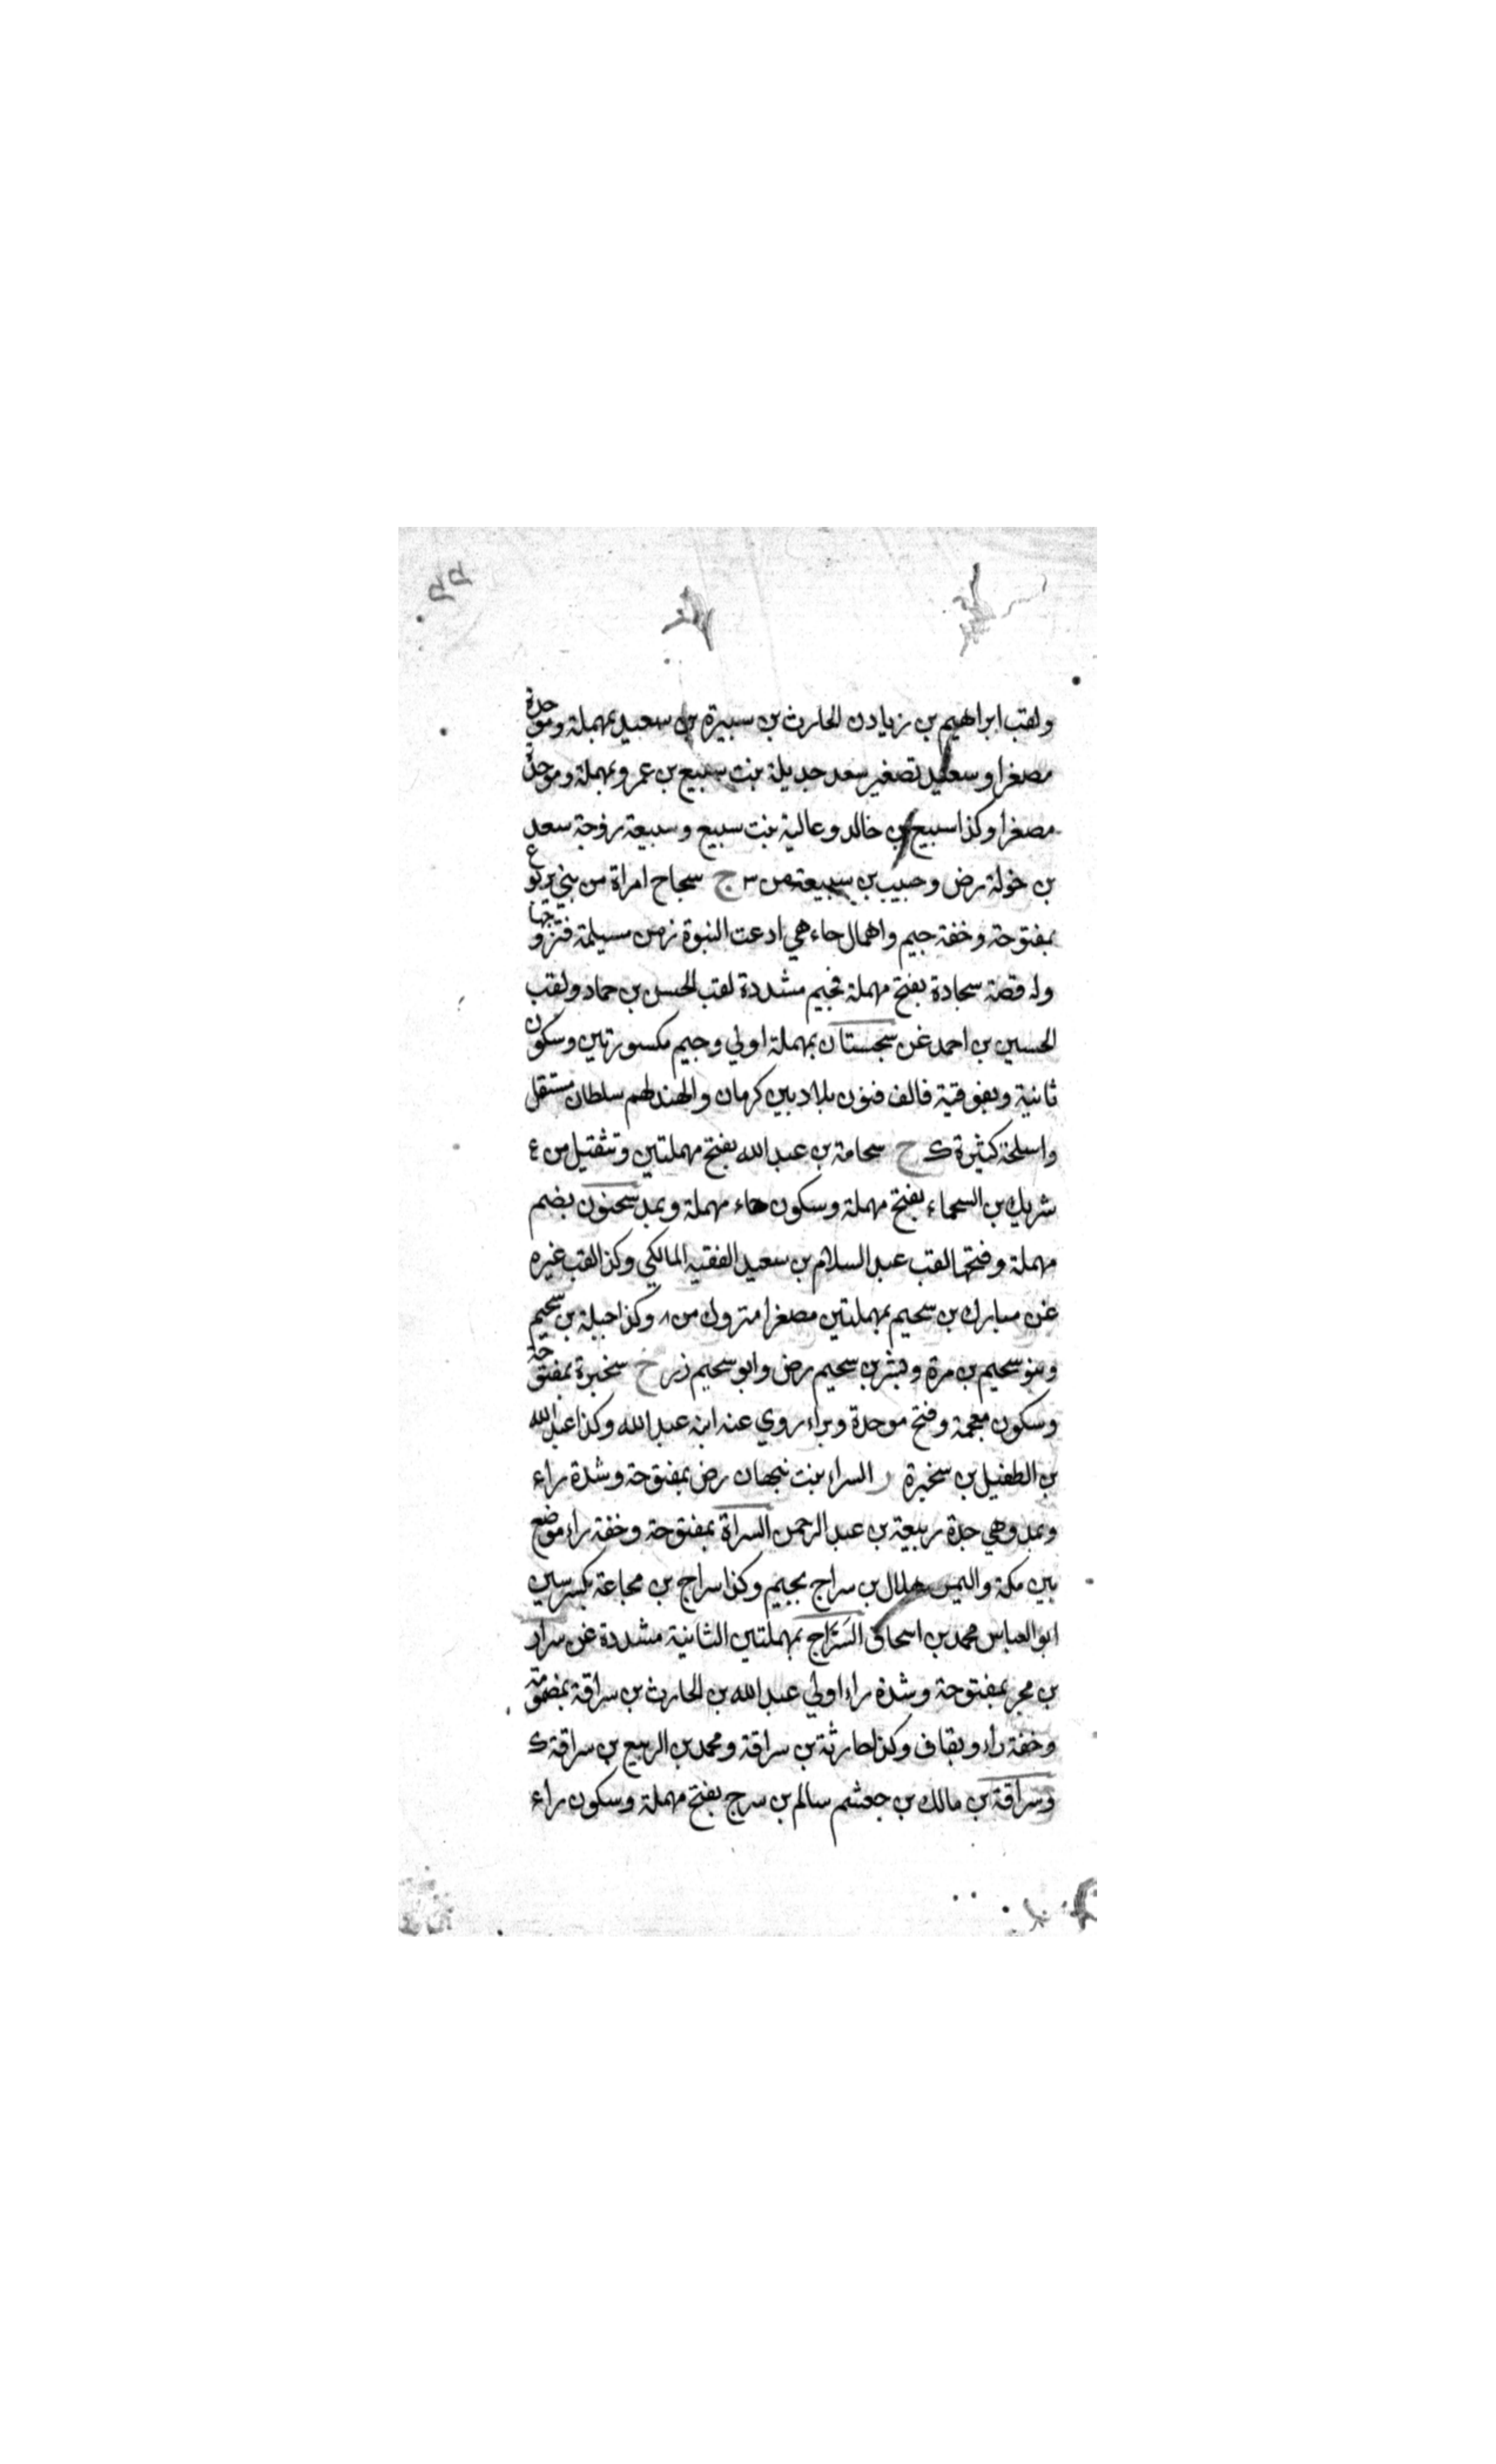 ولقب ابراهيم بن زيادن الحارث بن سبيرة بن سعيد بمهملة وموحدة
مصغرا وسعيد تصغير سعد جديلة بنت سبيع بن عمرو بمهملة وموحدة
مصغرا وكذا سبيع بن خالد وعالية بنت سبيع وسبيعة زوجة سعد
بن خولة رض وحبيب بن سبيعة من س ج سجاح امراة من بني يربوع
بمفتوحة وخفة جيم واهمال حاء هي ادعت النبوة زمن مسيلمة فتزوجها
وله قصة سجادة بفتح مهملة فجيم مشددة لقب الحسن بن حماد ولقب
الحسين بن احمد غن سجستان بمهملة اولي وجيم مكسورتين وسكون
ثانية وبفوقية فالف فنون بلاد بين كرمان والهند لهم سلطان مستقل
واسلحة كثيرة ك ح سحامة بن عبد الله بفتح مهملتين وتثقيل من ع
شريك بن السحماء بفتح مهملة وسكون حاء مهملة وبمد سحنون بضم
مهملة وفتحها لقب عبد السلام بن سعيد الفقيه المالكي وكذا لقب غيره
غن مبارك بن سحيم بمهملتين مصغرا متروك من ٨ وكذا جبلة بن سحيم
وبنو سحيم بن مرة وبشر بن سحيم رض وابو سحيم زر خ سخبرة بمفتوحة
وسكون معجمة وفتح موحدة وبراء روي عنه ابنه عبد الله وكذا عبد الله
بن الطفيل بن سخبرة ر السراء بنت نبهان رض بمفتوحة وشدة راء
وبمد وهي جدة ربيعة بن عبد الرحمن السراة بمفتوحة وخفة راء موضع
بين مكة واليمن هلال بن سراج بجيم وكذا سراج بن مجاعة بكسر سين
ابو العباس محمد بن اسحاق السَرّاج بمهملتين الثانية مشددة غن سرار
بن مجر بمفتوحة وشدة راء اولي عبد الله بن الحارث بن سراقة بمضمومة
وخفة راء وبقاف وكذا حارثة بن سراقة ومحمد بن الربيع بن سراقة ك
وسراقة بن مالك بن جعشم سالم بن سرج بفتح مهملة وسكون راء